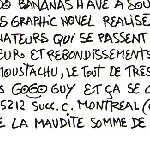 BANANAS HAVE A
S GRAPHIC NOVEL REALISE
ATEURS QUI SE PASSENT
EURO ET REBONDISSEMENTS
MOUSTACHU, LE TOUT DE TRES
GOGO GUY ET ÇA SE
5212 SUCC. C. MONTREAL (
E LA MAUDITE SOMME DE